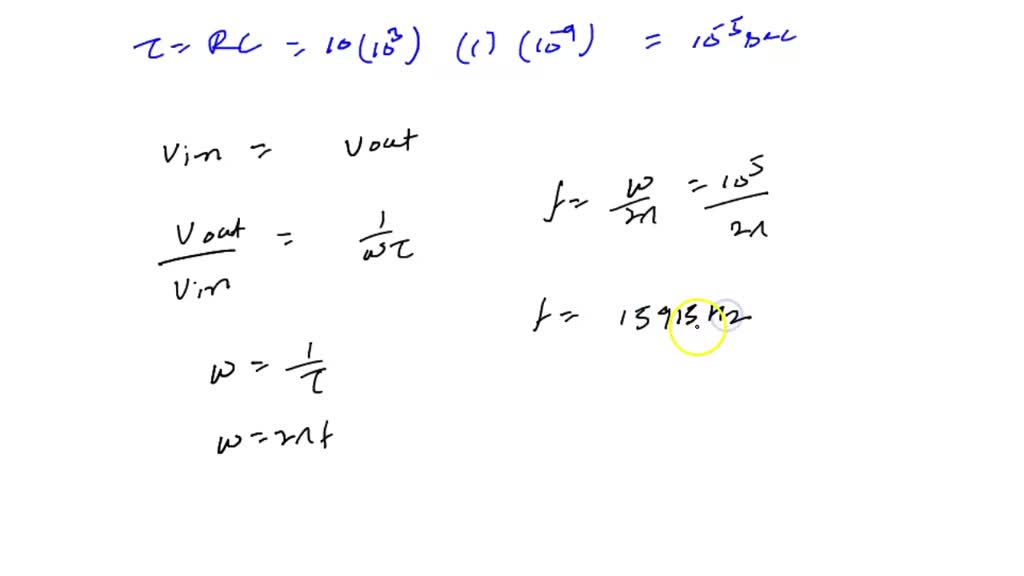 τ = RC = 10(10³) (1) (10⁻⁹) = 10⁻⁵ sec
Vin = Vout
Vout/Vin = 1/ωτ
ω = 1/τ
ω = 2πf
f = ω/2π = 10⁵/2π
f = 15915 Hz